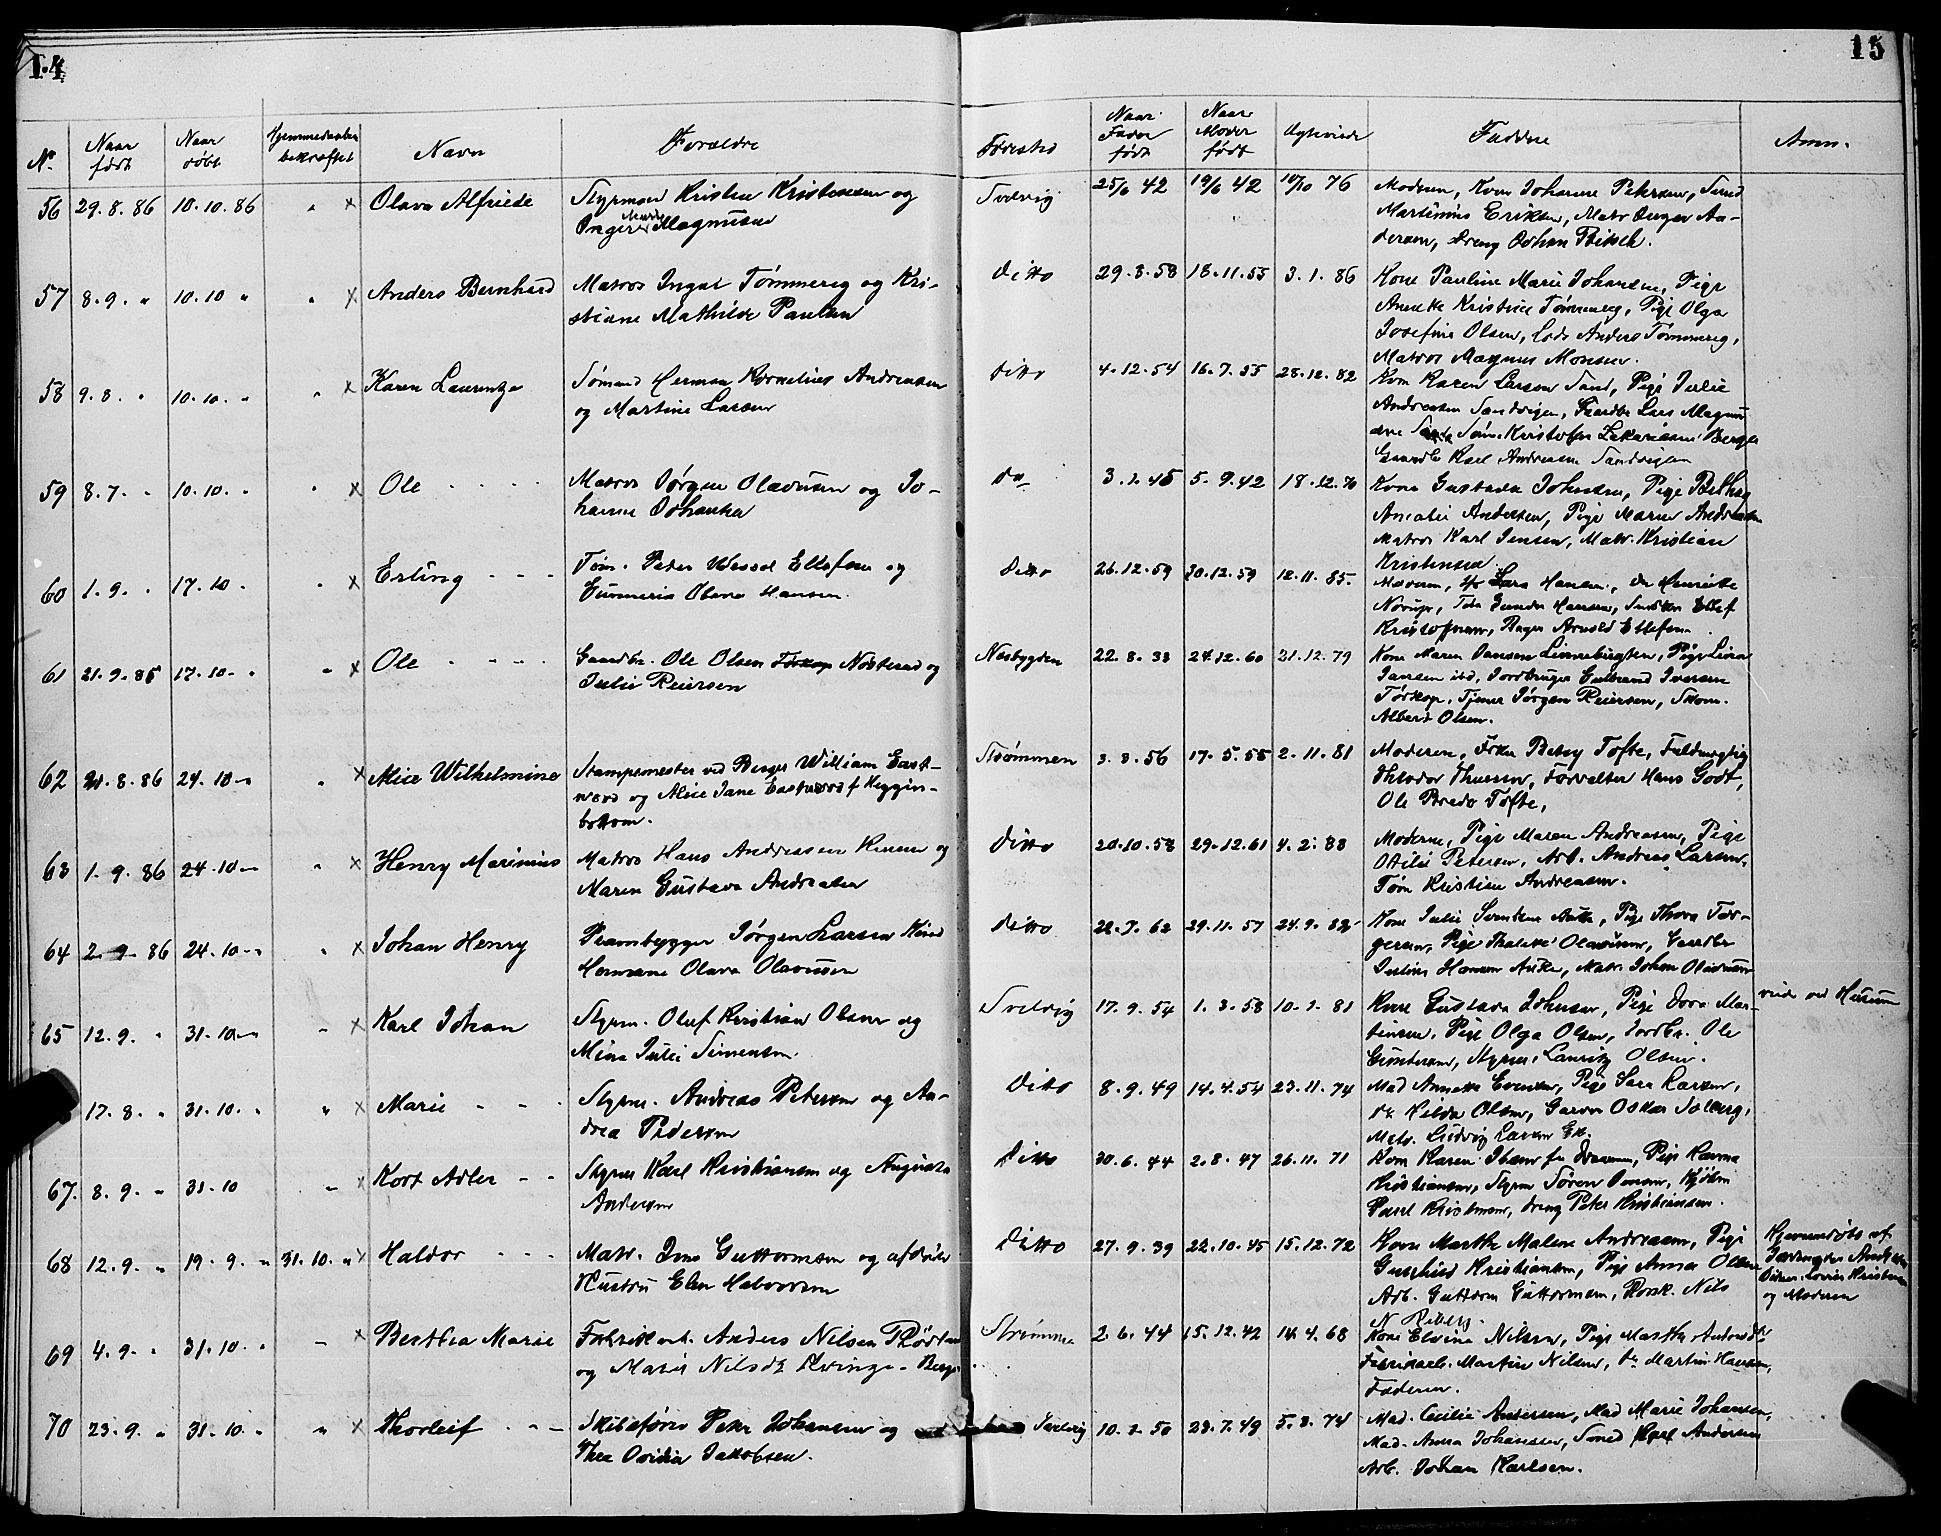 14
15
N. Naar født Naar døbt Hjemmedaaben bekræftet Navn Forældre
Fødested Naar Fader født Naar Moder født Ægteviede Faddere Anm.
56 29.8.86 10.10.86 " x Olava Alfriede Styrmand Kristen Kristensen og
Inger Marie Magnusen
Svelvig 25/6 42 19/6 42 10/10 76 Moderen, Kone Johanne Petersen, Smed
Martinius Eriksen, Matr
dersen, Dreng Johan
57 8.9. " 10.10 " " x Anders Bernhard Matros Ingal Tømmereg og Kri-
stiane Mathilde Paulsen
Ditto 29.8.58 18.11.55 3.1.86 Kone Pauline Marie Johansen, Pige
Annette Kristine Tømmereg, Pige Olga
Josefine Olsen, Lods Anders Tømmereg,
Matros Magnus Monsen.
58 9.8. " 10.10. " " x Karen Laurentze Sømand Herman Kornelius Andreasen
og Martine Larsen
Ditto 4.12.54 16.7.55 28.12.82 Kone Karen Larsen Sand, Pige Julie
Andreasen Sandvigen, Gaardbr Lars Magnu
Kristofer Zakariasen Berger
Gaardb Karl Andreasen Sandvigen
59 8.7. " 10.10. " " x Ole - - - - Matros Jørgen Olavesen og Jo-
hanne Johansen
Do 5.9.42 18.12.70 Kone Gustava Johnsen, Pige
Amalie Andersen, Pige Maren Andreasen
Matros Karl Jensen, Matr. Kristian
Kristensen
60 1.9. " 17.10 " " x Erling - - - Tøm. Peder Wessel Ellefsen og
Gunneria Olava Hansen.
Ditto 26.12.59 30.12.59 12.11.85. Moderen, Lars Hansen, Henriette
Norup, Gunda Hansen, Ellef
Kristoffersen, Bager Arnold Ellefsen
61 21.9.85 17.10- " " x Ole - - - - Gaardbr. Ole Olsen Nøsterud og
Julie Reiersen
Nesbygden 22.8.33 24.12.60 21.12.79 Kone Maren Hansen Linnebugten, Pige Lina
Jansen ibd, Jordbruger Gulbrand Iversen
Tørkop, Tjener Jørgen Reiersen, Skom.
Albert Olsen.
62 21.8.86 24.10- " x Alice Wilhelmine Stampemester ved Berger William East-
wood og Alice Jane Eastwood f Heggin-
bottom.
Strømmen 3.8.56 17.5.55 2.11.81 Moderen, Frkn Betsy Tofte, Fuldmægtig
Theodor Thuesen, Forvalter Hans Godt,
Ole Bredo Tofte,
63 1.9.86 24.10- " x Henry Marinius Matros Hans Andreasen og
Maren Gustava Andreasen
Ditto 20.10.58 29.12.61 4.2.83 Moderen, Pige Maren Andreasen, Pige
Otilie Petersen, Arb. Andreas Larsen,
Tøm Kristian Andreasen.
64 2-9-86 24.10- " " x Johan Henry Prambygger Jørgen Larsen
Hermane Olava Olavesen
Ditto 22.7.62 29.11.57 24.9.82 Kone Julie Svendsen, Pige Thora Tor-
gersen, Pige Thalette Olavesen, Gaardbr
Julius Hansen, Matr. Johan Olavesen
65 12.9. " 31.10- " x Karl Johan Styrm. Oluf Kristian Olsen og
Mina Julie Simensen.
Svelvig 17.9.54 1.3.58 10.2.81 Kone Gustava Johnsen, Pige Dora Mar-
tinsen, Pige Olga Olsen, Jordbr. Ole
Gundersen, Styrm. Lauritz Olsen.
viede ved Hurum
17.8. " 31.10. " " x Marie - - - Styrm. Andreas Petersen og An-
drea Pedersen
Ditto 8.9.49 14.4.54 23.11.74 Mad Annette Evensen, Pige Sara Larsen,
do Hilda Olsen, Garver Oskar Solberg,
Matr. Ludvig Larsen
67. 8.9. " 31.10 " x Kort Adler - - Styrm Karl Kristiansen og Augusta
Andersen
Ditto 30.6.44 2.8.47 26.11.71 Kone Karen Ibsen fra Drammen, Pige Hanna
Kristiansen, Styrm Søren Hansen, Kjøbm
Paul Kristensen, dreng Peter Kristiansen.
68 12.9. " 19.9. " 31.10. " x Haldor - - - Matr. Jens Guttormsen og afdøde
Hustru Elen Halvorsen
Ditto 27.9.39 22.10.45 15.12.72 Kone Marthe Malene Andreasen, Pige
Gunhild Kristiansen, Pige Anna Olsen
Arb. Guttorm Guttormsen, Nils
N Riberg.
Hjemmedøbt af
Kristensen
og Moderen
69 4.9. " 31.10. " - x Berthea Marie Fabrikarb. Anders Nilsen Rødtan
og Marie Nilsdt Kvinge - Berge
Strømmen 2.6.44 15.12.42 14.4.68 Kone Elvine Nilsen, Pige Marthe Andersdtr
Fabrikarb. Martin Nilsen, do Martin Hansen,
Faderen.
70 23.9. " 31.10. " " x Thorleif - - - Skibsfører Peter Johansen og
Thea Ovidia Jakobsen.
Svelvig 10.2.50 23.7.49 5.8.74 Mad. Cecilie Andersen, Mad Marie Johansen,
Mad. Anna Johansen, Smed Karl Andersen
Arb. Johan Karlsen.